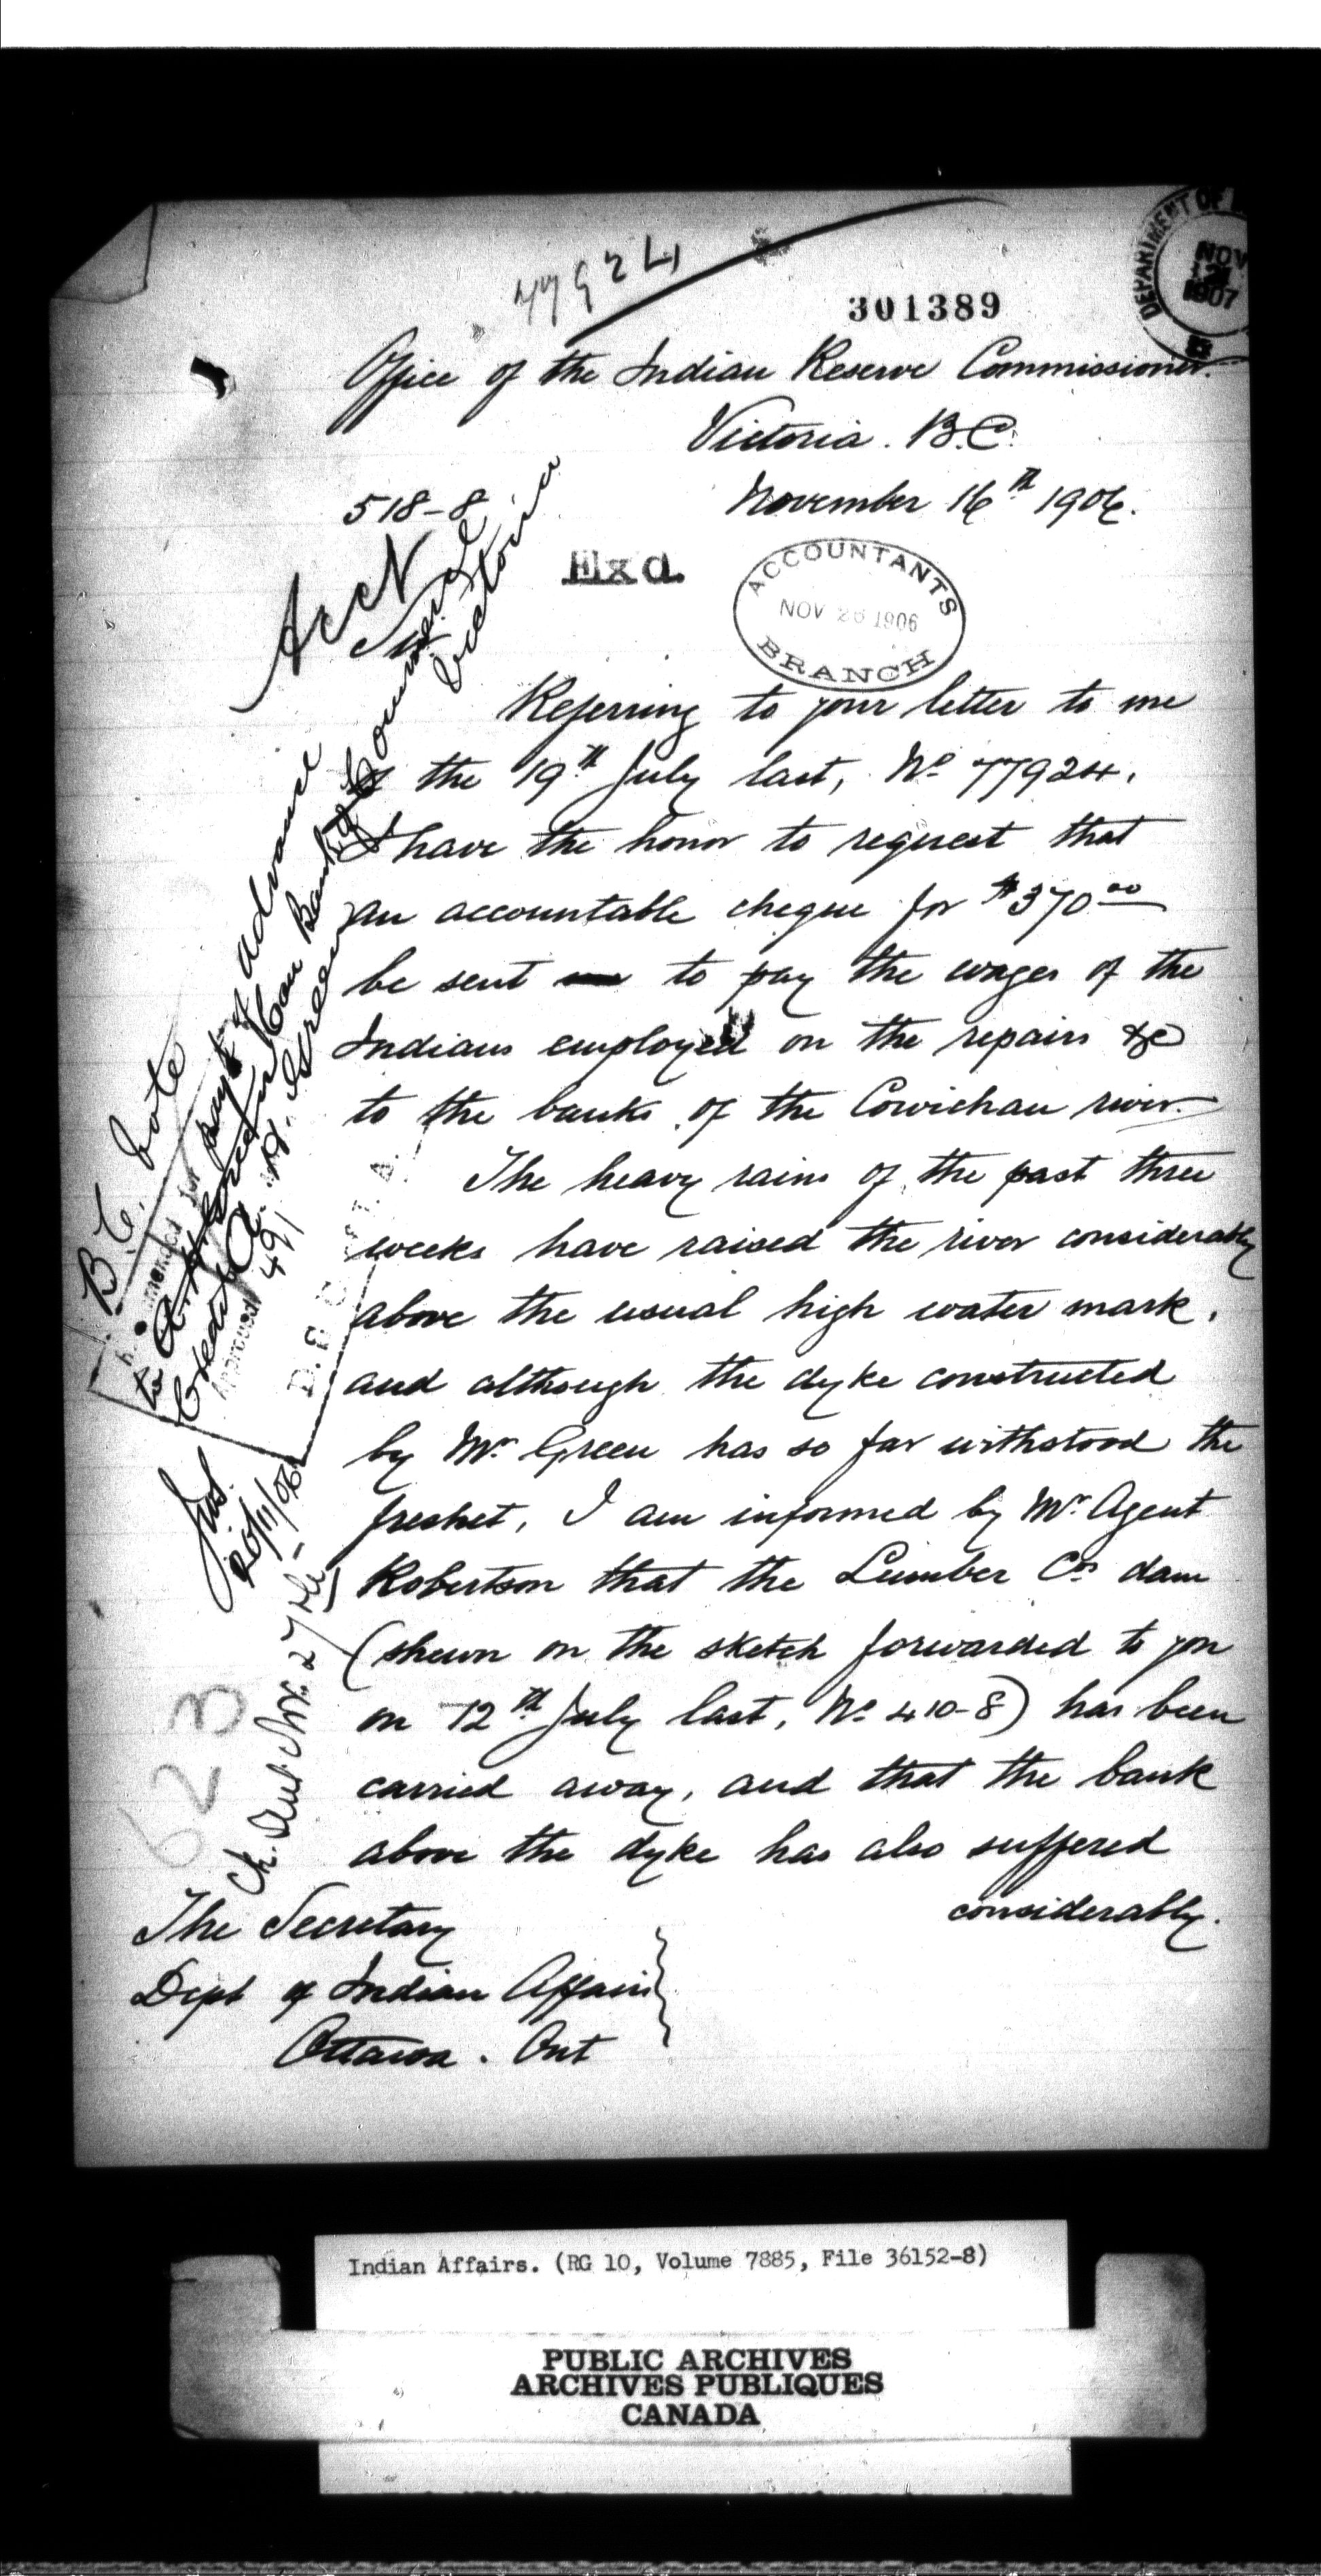 77924
301389
DEPARTMENT OF
NOV
21
1907
Office of the Indian Reserve Commissioner.
Victoria. B.C.
518-8
November 16th 1906.
Exd.
ACCOUNTANTS
NOV 26 1906
BRANCH
Sir
Referring to your letter to me
of the 19th July last, No 77924,
I have the honor to request that
an accountable cheque for $370.00
be sent to pay the wages of the
Indians employed on the repairs &c
to the banks of the Cowichan river.
The heavy rains of the past three
weeks have raised the river considerably
above the usual high water mark,
and although the dyke constructed
by Mr Green has so far withstood the
freshet, I am informed by Mr Agent
Robertson that the Lumber Cos dam
(shewn on the sketch forwarded to you
on 12th July last, No 410-8) has been
carried away, and that the bank
above the dyke has also suffered
considerably.
The Secretary
Dept of Indian Affairs
Ottawa. Ont
B.C. Vote
Recommended for payt of advance
to A. H. Green
Can Bank of Commerce
Victoria
Credit A. H. Green
Approved 491
D.S.G.I.A.
26/11/06
Ch. Nov. 27
623
Indian Affairs. (RG 10, Volume 7885, File 36152-8)
PUBLIC ARCHIVES
ARCHIVES PUBLIQUES
CANADA